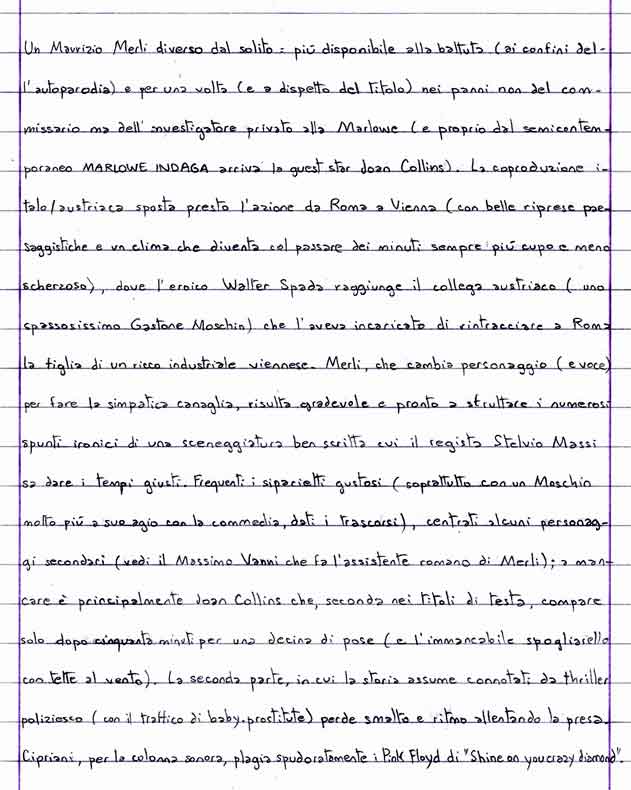 Un Maurizio Merli diverso dal solito: più disponibile alla battuta (ai confini del-
l'autoparodia) e per una volta (e a dispetto del titolo) nei panni non del com-
missario ma dell'investigatore privato alla Marlowe (e proprio dal semicontem-
poraneo MARLOWE INDAGA arriva la guest star Joan Collins). La coproduzione i-
talo/austriaca sposta presto l'azione da Roma a Vienna (con belle riprese pae-
saggistiche e un clima che diventa col passare dei minuti sempre più cupo e meno
scherzoso), dove l'eroico Walter Spada raggiunge il collega austriaco (uno
spassosissimo Gastone Moschin) che l'aveva incaricato di rintracciare a Roma
la figlia di un ricco industriale viennese. Merli, che cambia personaggio (e voce)
per fare la simpatica canaglia, risulta gradevole e pronto a sfruttare i numerosi
spunti ironici di una sceneggiatura ben scritta cui il regista Stelvio Massi
sa dare i tempi giusti. Frequenti i siparietti gustosi (soprattutto con un Moschin
molto più a suo agio con la commedia, dati i trascorsi), centrati alcuni personag-
gi secondari (vedi il Massimo Vanni che fa l'assistente romano di Merli); a man-
care è principalmente Joan Collins che, seconda nei titoli di testa, compare
solo dopo cinquanta minuti per una decina di pose (e l'immancabile spogliarello
con tette al vento). La seconda parte, in cui la storia assume connotati da thriller
poliziesco (con il traffico di baby-prostitute) perde smalto e ritmo allentando la presa.
Cipriani, per la colonna sonora, plagia spudoratamente i Pink Floyd di "Shine on you crazy diamond".